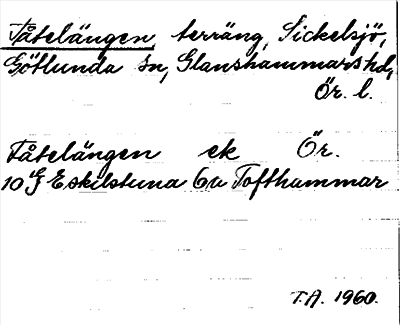 Fåtelängen, terräng, Sickelsjö,
Götlunda sn, Glanshammars hd,
Ör. l.
Fåtelängen ek Ör.
10 G Eskilstuna 6u Tofthammar
T.A. 1960.